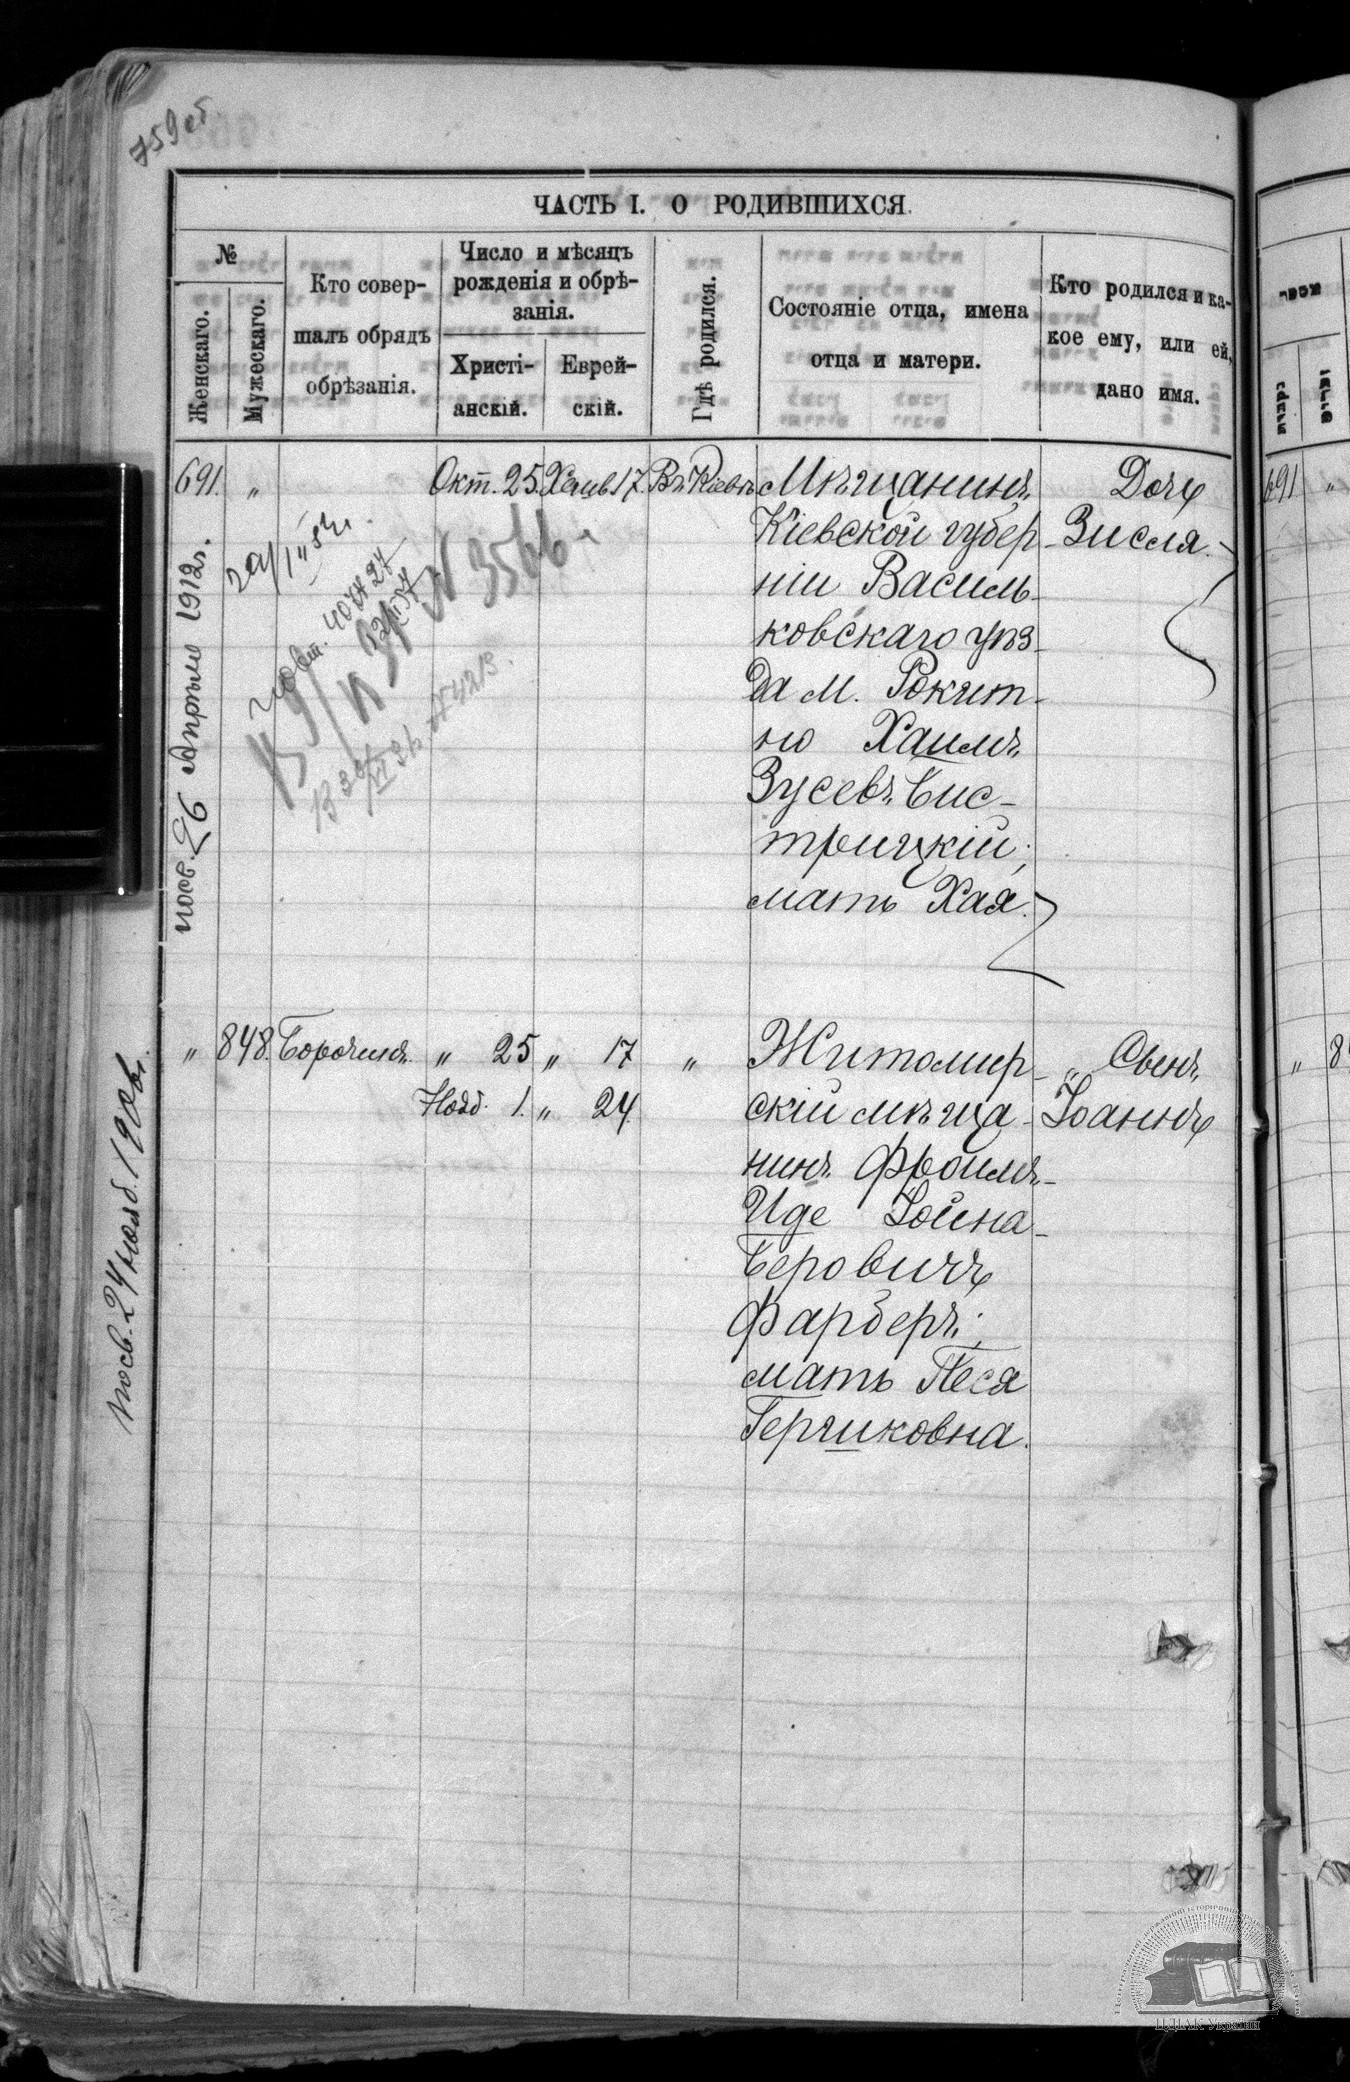 759об
ЧАСТЬ I. О РОДИВШИХСЯ.
№
Женскаго.
Мужескаго.
Кто совер-
шалъ обрядъ
обрѣзанія.
Число и мѣсяцъ
рожденія и обрѣ-
занія.
Христі-
анскій.
Еврей-
скій.
Гдѣ родился.
Состояніе отца, имена
отца и матери.
Кто родился и ка-
кое ему, или ей,
дано имя.
691. " Окт. 25. Хешв. 17. Въ Кіевѣ
Мѣщанинъ
Кіевской губер-
ніи Василь-
ковскаго уѣз-
да м. Рокит-
но Хаимъ
Зусевъ Бис-
трицкій;
мать Хая.
Дочь
Зисля.
посв. 26 Апрѣля 1912 г.
N 3566
" 848. Борочинъ. " 25 " 17 "
Нояб. 1. " 24.
Житомир-
скій мѣща-
нинъ Фроимъ-
Иде Іойна-
Беровичъ
Фарберъ;
мать Песя
Герчиковна.
" Сынъ
Іоаннъ
посв. 24 нояб. 190
691 "
" 8
ЦДІАК України